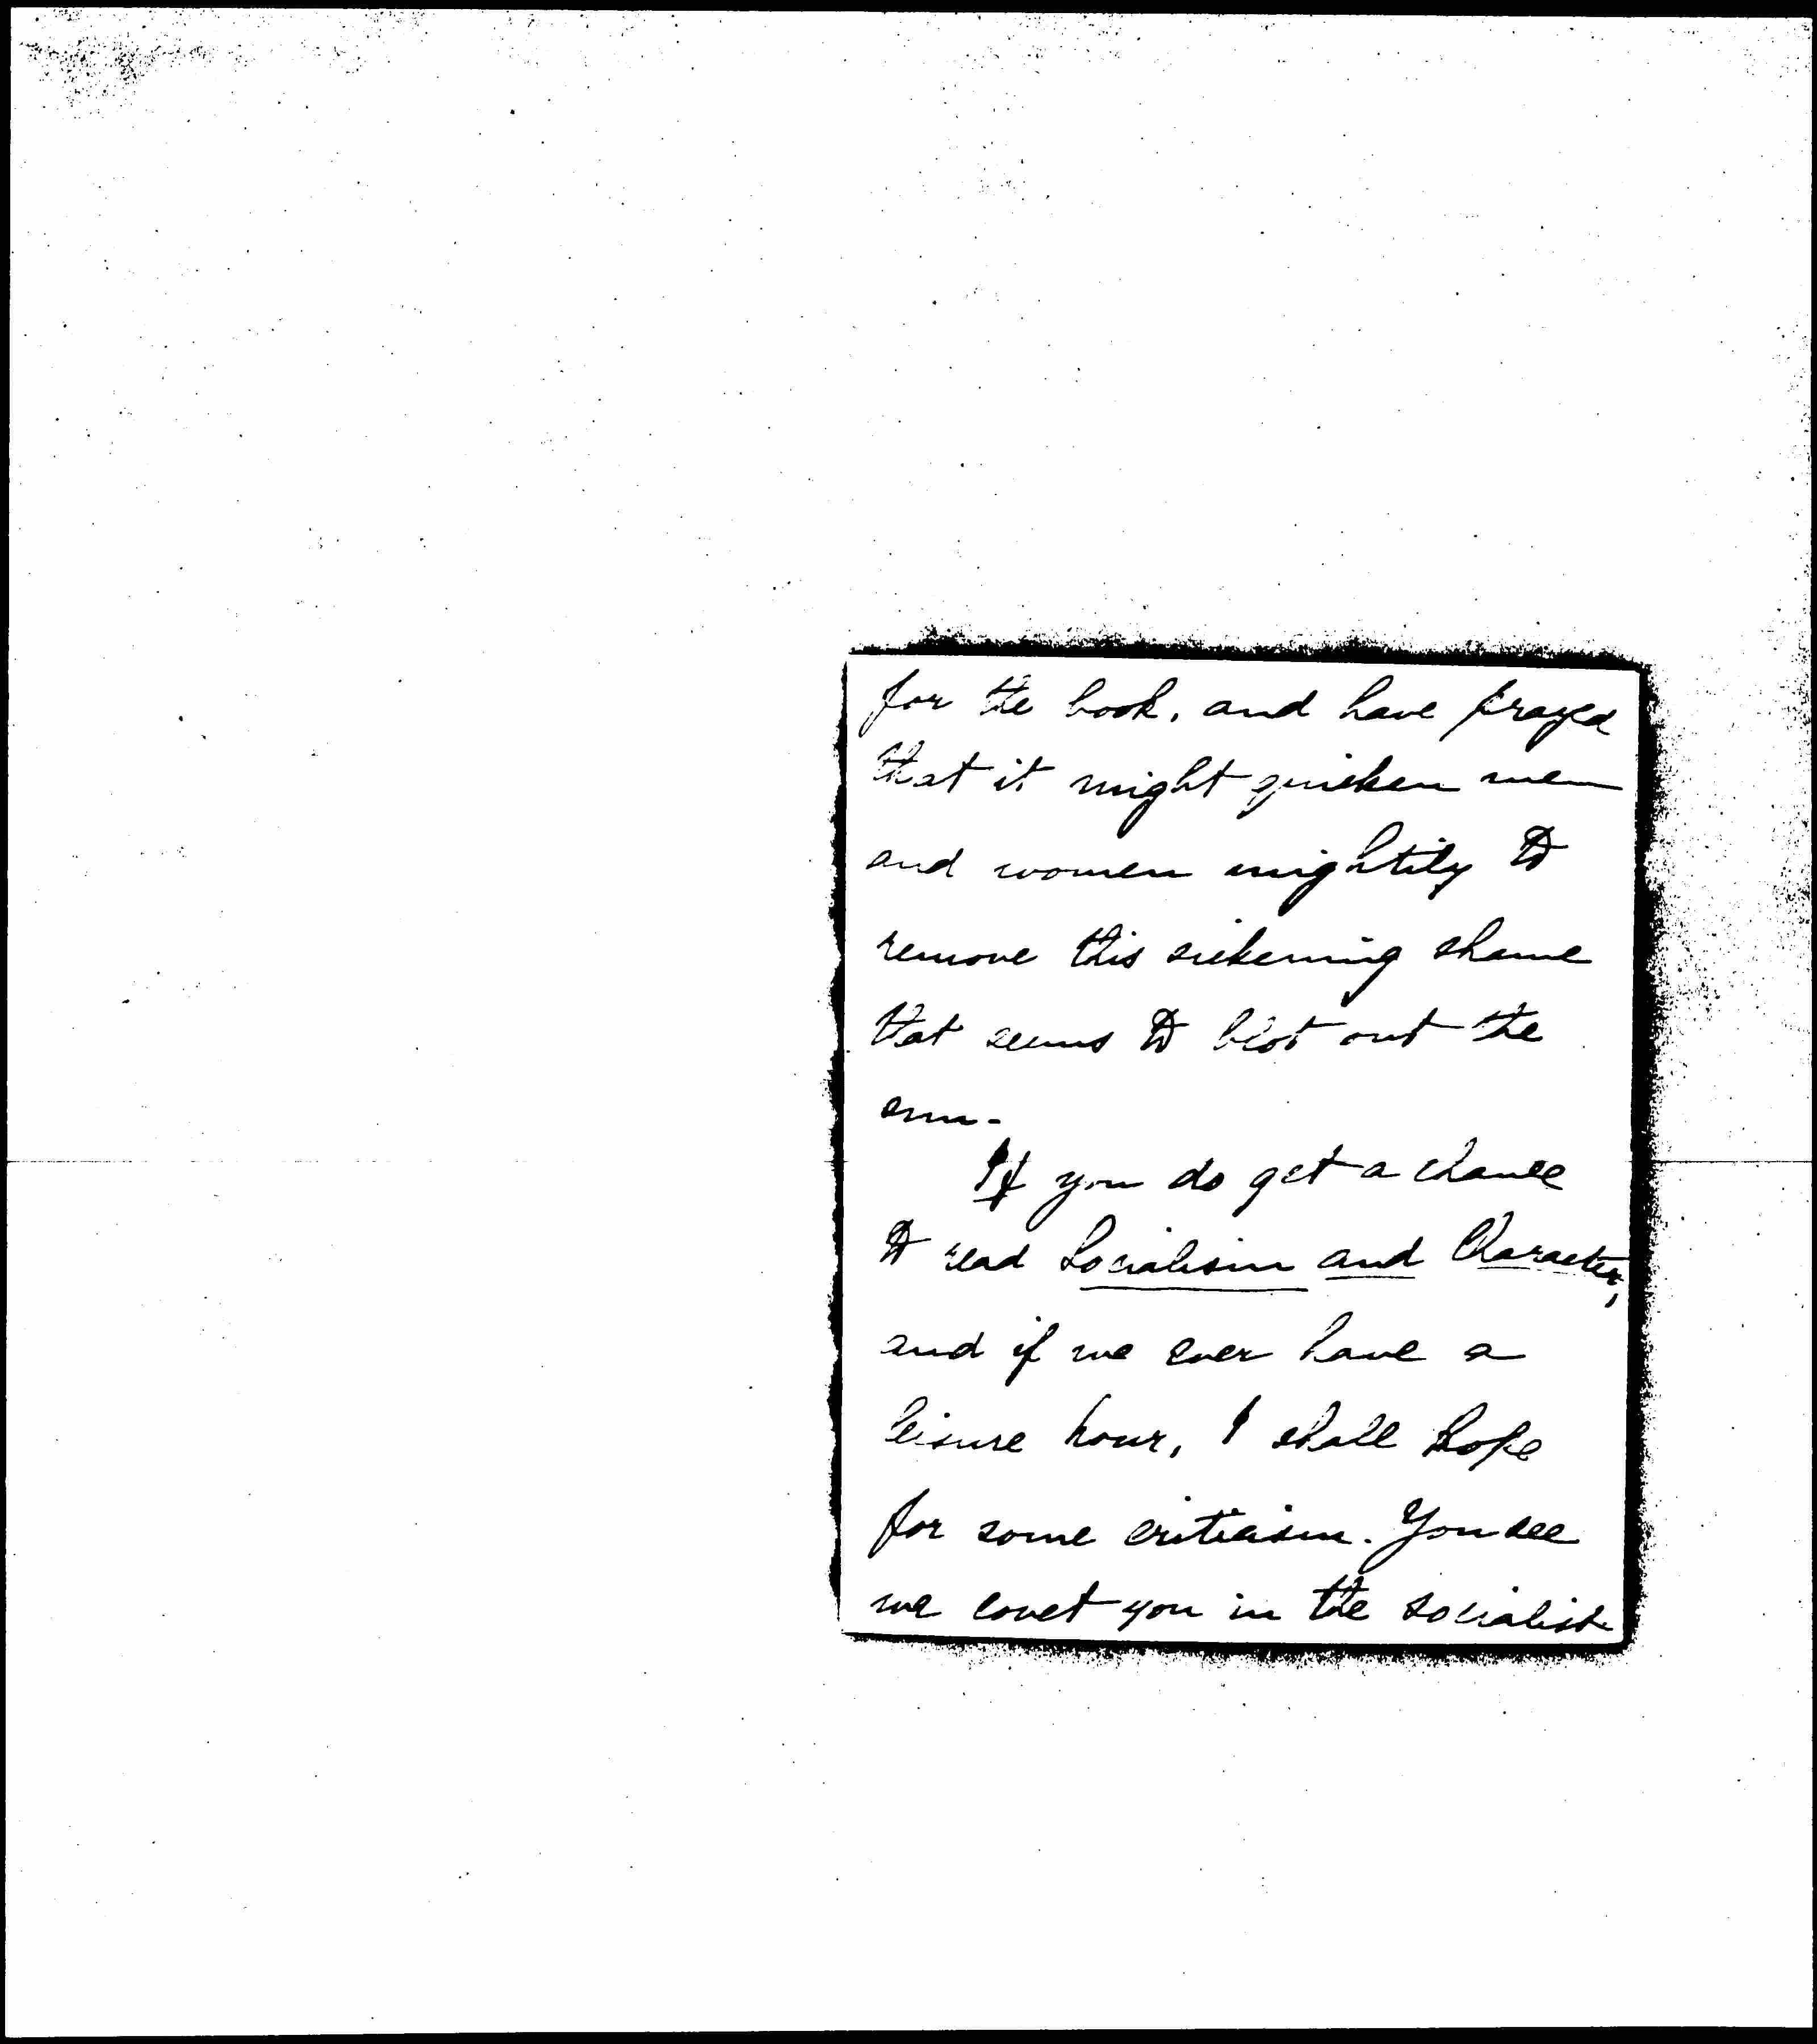 for the book, and have prayed
that it might quicken men
and women mightily to
remove this sickening shame
that seems to blot out the
sun.
If you do get a chance
to read Socialism and Character,
and if we ever have a
leisure hour, I shall hope
for some criticism. You see
we covet you in the socialist